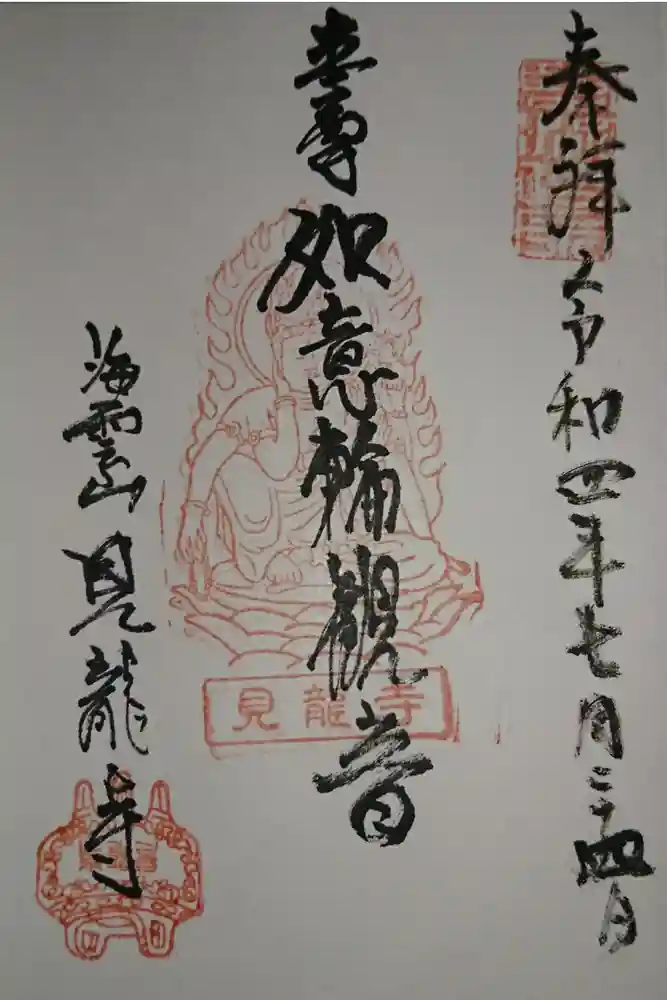 奉拝 令和四年七月二十四日
本尊 如意輪観音
海雲山 見龍寺
見龍寺